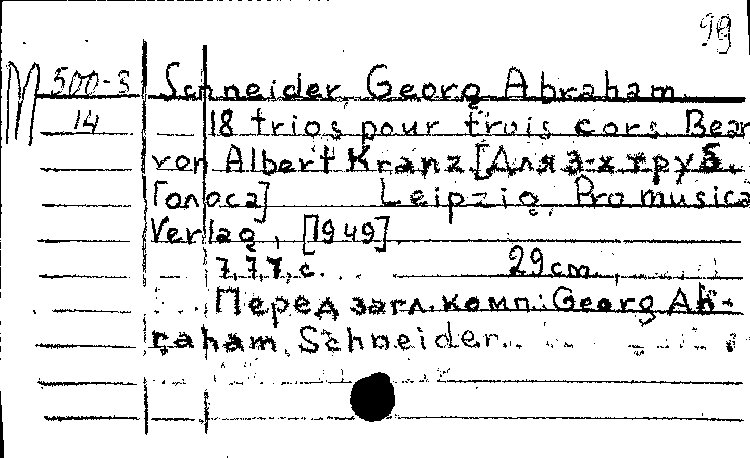 99
М 500-3 Schneider, Georg Abraham
14 18 trios pour trois cors. Bear
von Albert Kranz [Для 3-х труб.
Голоса] Leipzig, Pro musica
Verlag, [1949].
7,7,7,с. 29cm
Перед загл. комп.: Georg Ab-
raham Schneider.